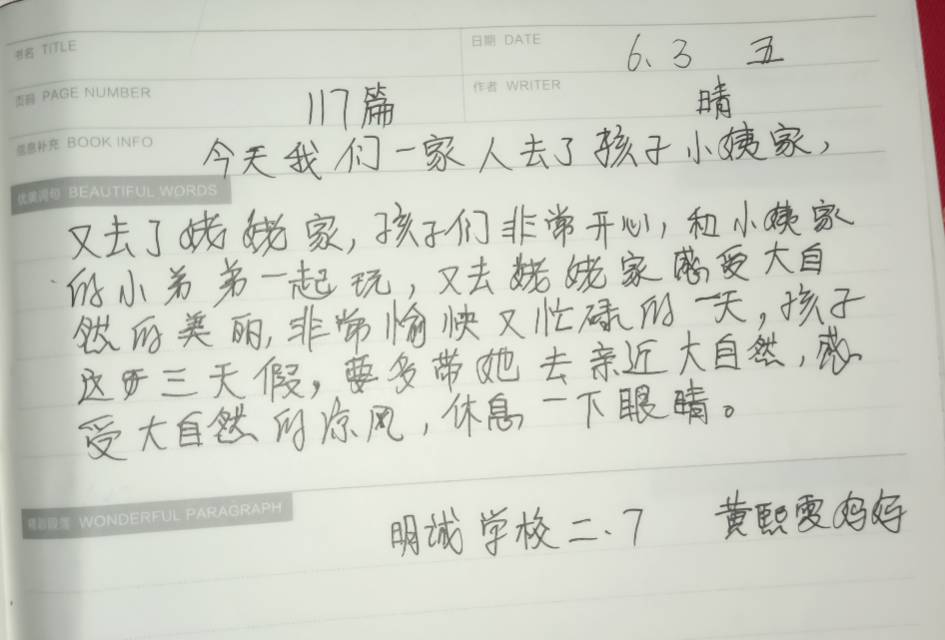 书名 TITLE
日期 DATE 6.3 五
页码 PAGE NUMBER 117篇
作者 WRITER 晴
信息补充 BOOK INFO
今天我们一家人去了孩子小姨家，
优美词句 BEAUTIFUL WORDS
又去了姥姥家，孩子们非常开心，和小姨家
的小弟弟一起玩，又去姥姥家感受大自
然的美丽，非常愉快又忙碌的一天，孩子
这三天假，要多带她去亲近大自然，感
受大自然的凉风，休息一下眼睛。
精彩段落 WONDERFUL PARAGRAPH
明诚学校二.7 黄熙雯妈妈